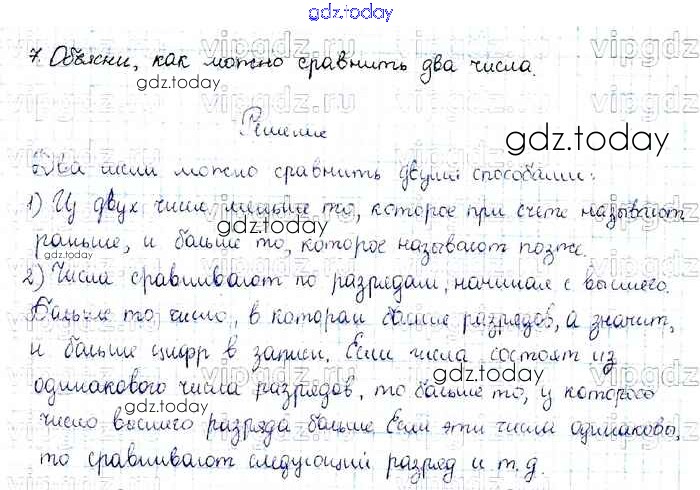 gdz.today
7. Объясни, как можно сравнить два числа.
gdz.today
Решение
gdz.today
Два числа можно сравнить двумя способами:
1) Из двух чисел меньше то, которое при счете называют
gdz.today
раньше, и больше то, которое называют позже.
2) Числа сравнивают по разрядам, начиная с высшего.
Больше то число, в котором больше разрядов, а значит,
gdz.today
и больше цифр в записи. Если числа состоят из
gdz.today
одинакового числа разрядов, то больше то, у которого
число высшего разряда больше. Если эти числа одинаковы,
gdz.today
то сравнивают следующий разряд и т.д.